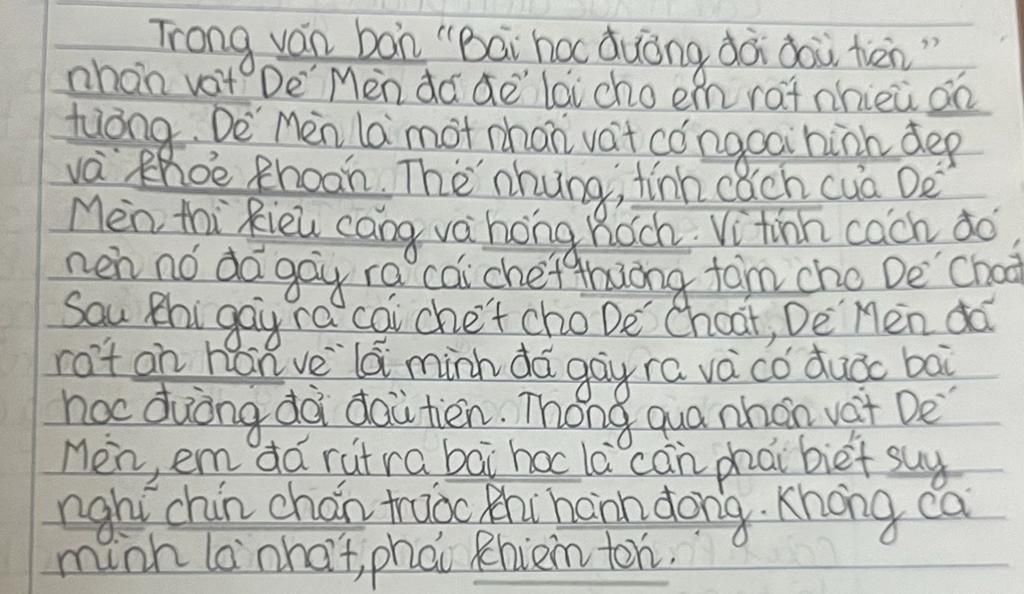 Trong văn bản "Bài học đường đời đầu tiên"
nhân vật Dế Mèn đã để lại cho em rất nhiều ấn
tượng. Dế Mèn là một nhân vật có ngoại hình đẹp
và khoẻ khoắn. Thế nhưng, tính cách của Dế
Mèn thì kiêu căng và hống hách. Vì tính cách đó
nên nó đã gây ra cái chết thương tâm cho Dế Choắt
Sau khi gây ra cái chết cho Dế Choắt, Dế Mèn đã
rất ân hận về lỗi mình đã gây ra và có được bài
học đường đời đầu tiên. Thông qua nhân vật Dế
Mèn, em đã rút ra bài học là cần phải biết suy
nghĩ chín chắn trước khi hành động. Không coi
mình là nhất, phải khiêm tốn.